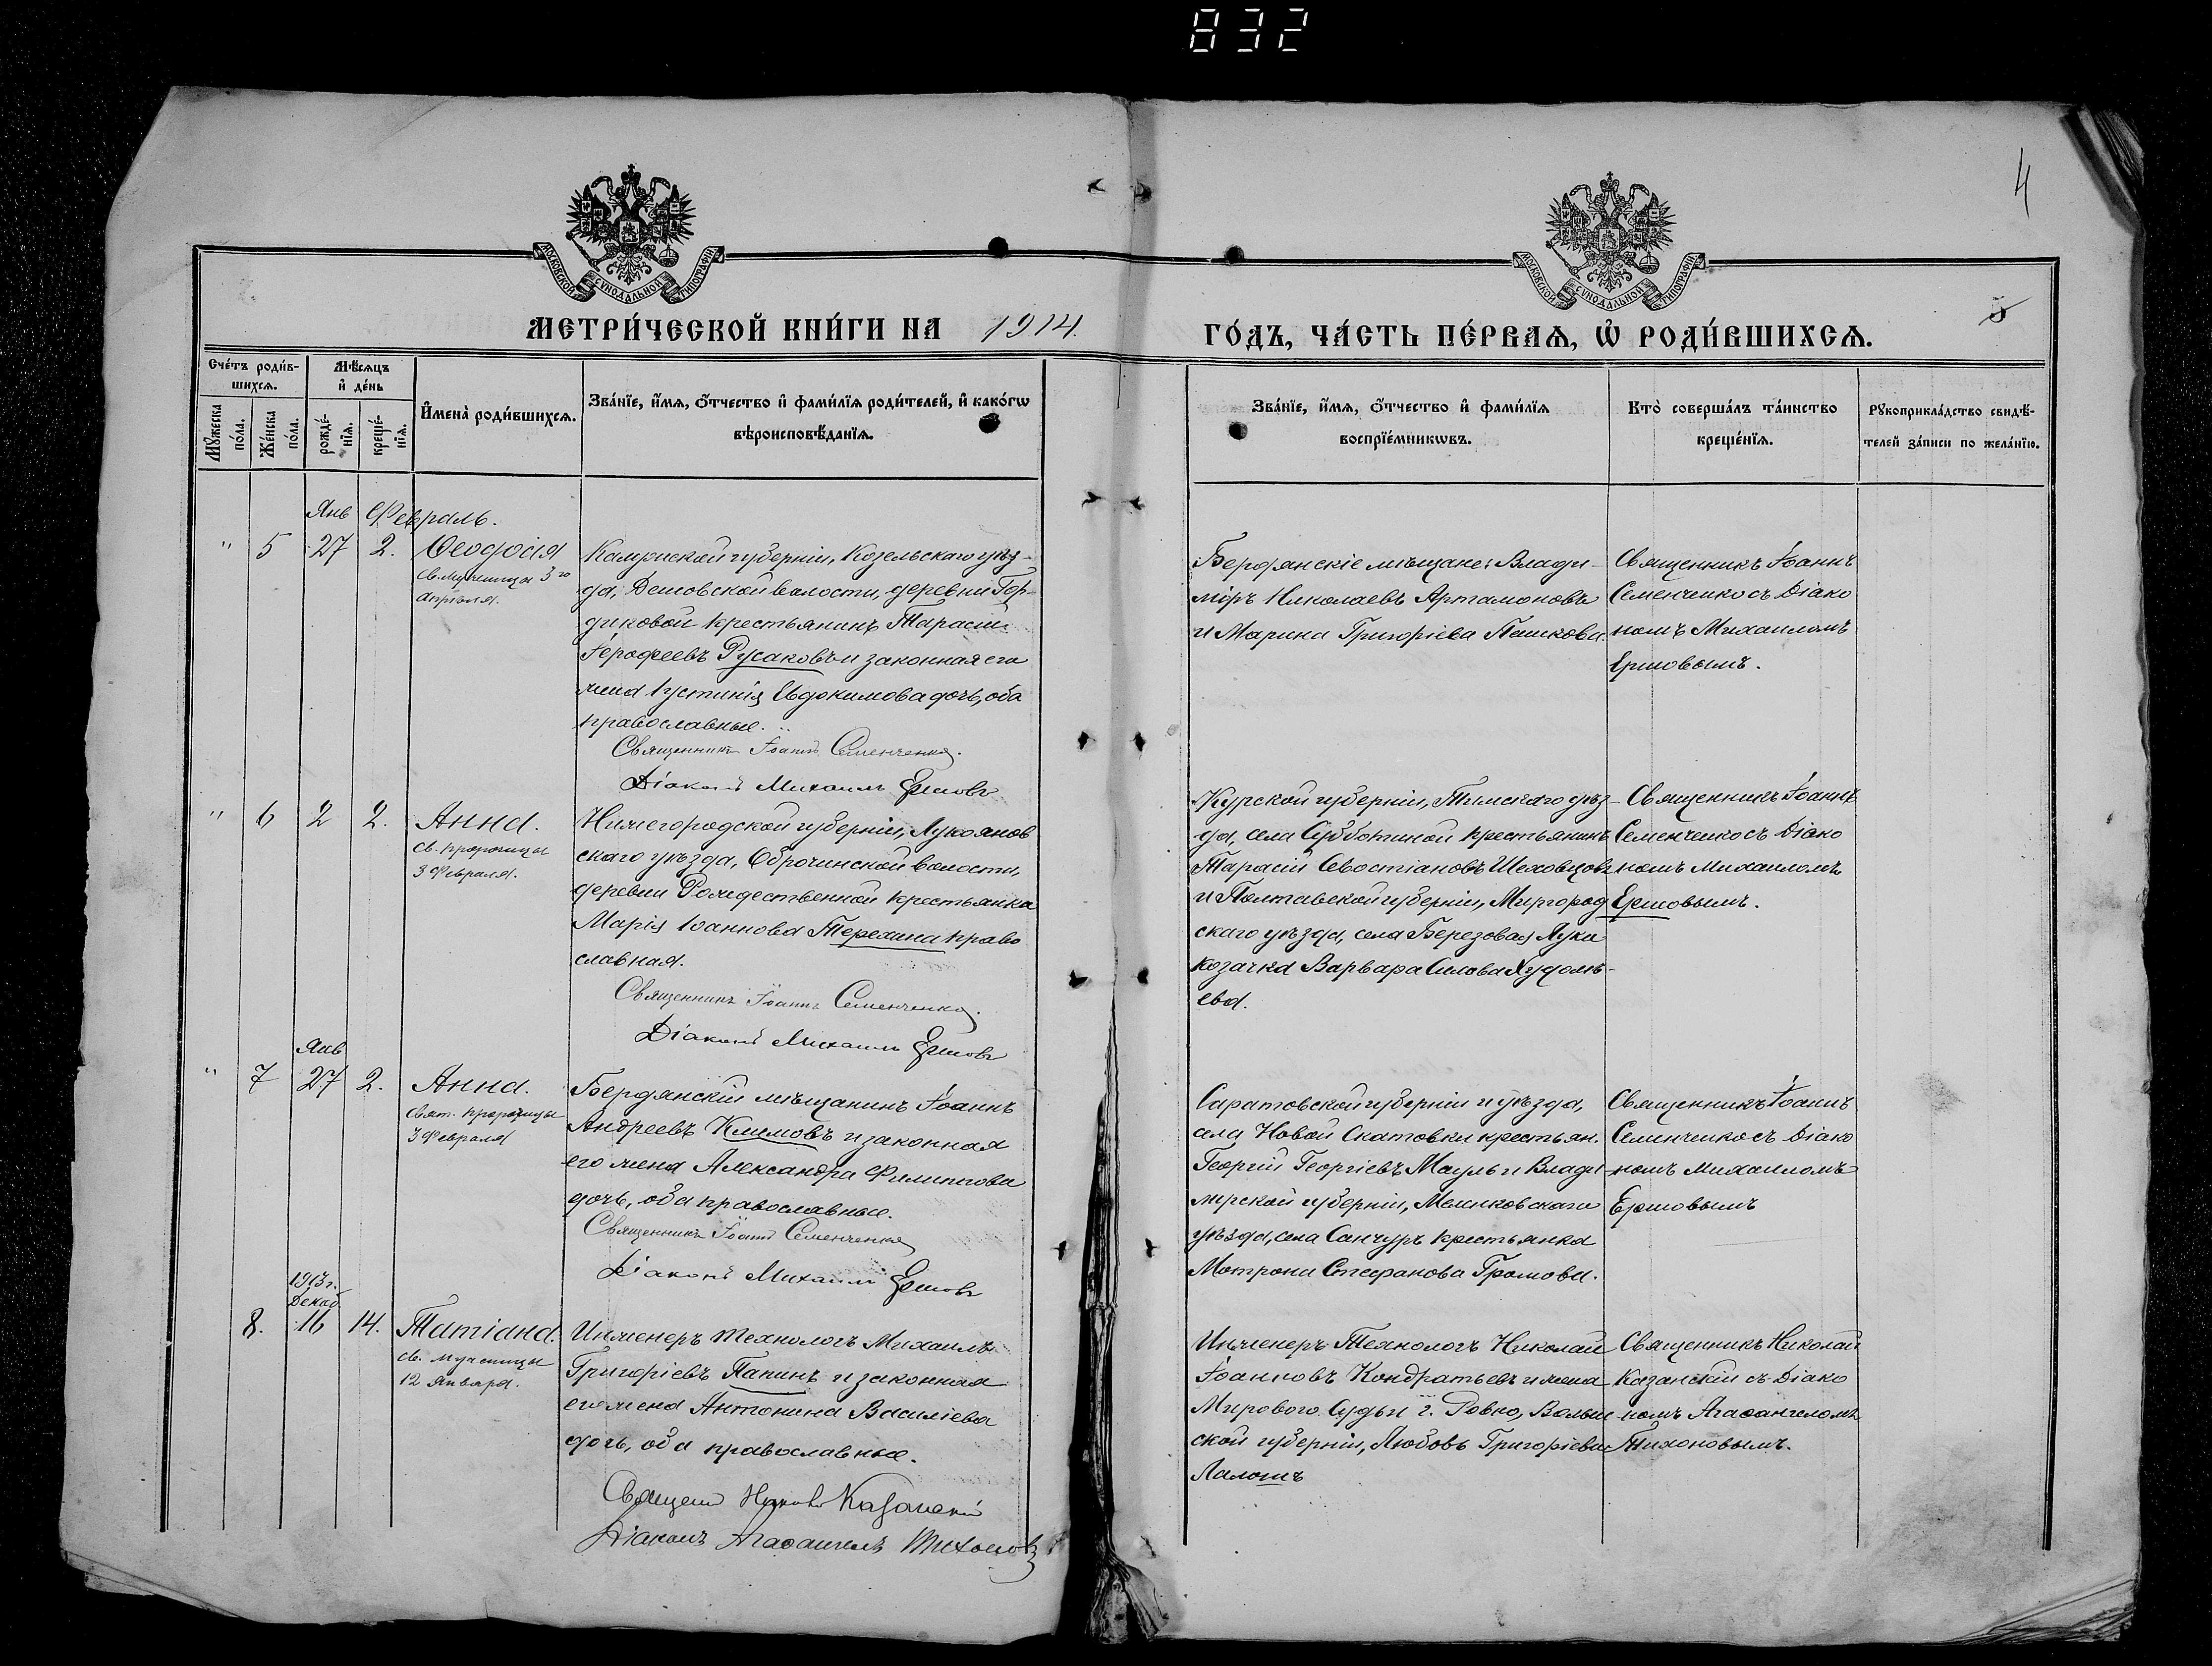 832
4
МОСКОВСКОЙ СѴНОДАЛЬНОЙ ТИПОГРАФІИ
МОСКОВСКОЙ СѴНОДАЛЬНОЙ ТИПОГРАФІИ
5
МЕТРИ́ЧЕСКОЙ КНИ́ГИ НА 1914.
ГО́ДЪ, ЧА́СТЬ ПЕ́РВАѦ, Ѡ҆ РОДИ́ВШИХСѦ.
Сче́тъ роди́в-
шихсѧ.
Мꙋ́жеска по́ла.
Же́нска по́ла.
Мѣ́сѧцъ
и҆ де́нь
рожде́-
нїѧ.
креще́-
нїѧ.
И҆мена̀ роди́вшихсѧ.
Зва́нїе, и҆́мѧ, ѻ҆́тчество и҆ фамн́лїѧ роди́телей, и҆ како́гѡ
вѣроисповѣ́данїѧ.
Зва́нїе, и҆́мѧ, ѻ҆́тчество и҆ фами́лїѧ
воспрїе́мникѡвъ.
Кто̀ соверша́лъ та́инство
креще́нїѧ.
Рꙋкоприкла́дство свидѣ́-
телей за́писи по жела́нїю.
Янв Февраль.
" 5 27 2. Ѳеодосія
св. мученицы 3го
апрѣля.
Калужской губерніи, Козельскаго уѣз-
да, Дешовской волости, деревни Гор-
диковой крестьянинъ Тарасій
Іерофеевъ Русаковъ и законная его
жена Іустинія Евдокимова дочь, оба
православные.
Священникъ Іоаннъ Семенченко.
Діаконъ Михаилъ Ершовъ
Бердянскіе мѣщане: Влади-
міръ Николаевъ Артамоновъ
и Марина Григоріева Пашкова.
Священникъ Іоаннъ
Семенченко съ Діако
номъ Михаиломъ
Ершовымъ.
" 6 2 2. Анна.
св. пророчицы
3 Февраля.
Нижегородской губерніи, Лукоянов
скаго уѣзда, Оброчинской волости,
деревни Рождественной крестьянка
Марія Іоаннова Терехина право
славная.
Священникъ Іоаннъ Семенченко.
Діаконъ Михаилъ Ершовъ
Курской губерніи, Тимскаго уѣз-
да, села Субботиной крестьянинъ
Тарасій Севостіановъ Шеховцовъ
и Полтавской губерніи, Миргород
скаго уѣзда, села Березовая Лука
козачка Варвара Силова Худоль-
ева.
Священникъ Іоаннъ
Семенченко съ Діако
номъ Михаиломъ
Ершовымъ.
Янв
" 7 27 2. Анна.
Свят. пророчицы
3 Февраля
Бердянскій мѣщанинъ Іоаннъ
Андреевъ Климовъ и законная
его жена Александра Филиппова
дочь, оба православные.
Священникъ Іоаннъ Семенченко
Діаконъ Михаилъ Ершовъ
Саратовской губерніи и уѣзда,
села Новой Скатовки крестьян.
Георгій Георгіевъ Мауль и Влади
мірской губерніи, Меленковскаго
уѣзда, села Санчуръ крестьянка
Мотрона Стефанова Громова.
Священникъ Іоаннъ
Семенченко съ Діако
номъ Михаиломъ
Ершовымъ
1913 г.
Декаб.
8. 16 14. Татіана.
св. мученицы
12 Января.
Инженеръ технологъ Михаилъ
Григоріевъ Папинъ и законная
его жена Антонина Василіева
дочь, оба православные.
Священ Николай Казанскій
Діаконъ Агаѳангелъ Тихоновъ
Инженеръ Технологъ Николай
Іоанновъ Кондратьевъ и жена
Мирового Судьи г. Ровно, Волын
ской губерніи, Любовь Григоріева
Лалошъ
Священникъ Николай
Казанскій съ Діако
номъ Агаѳангеломъ
Тихоновымъ.